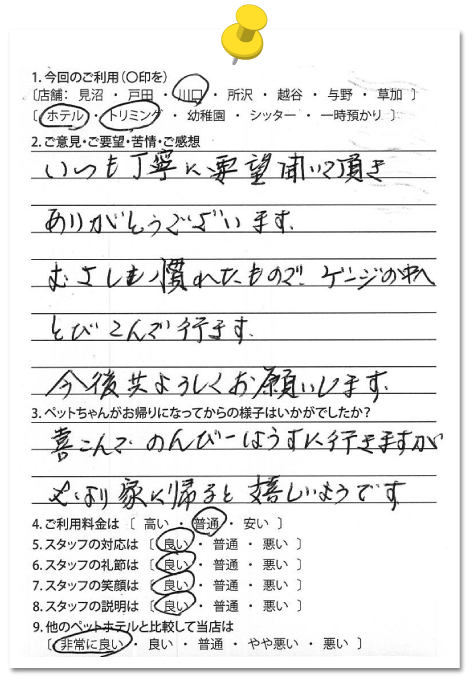 1. 今回のご利用（〇印を）
〔店舗： 見沼 ・ 戸田 ・ 川口 ・ 所沢 ・ 越谷 ・ 与野 ・ 草加 〕
〔 ホテル ・ トリミング ・ 幼稚園 ・ シッター ・ 一時預かり 〕
2.ご意見・ご要望・苦情・ご感想
いつも丁寧に要望聞いて頂き
ありがとうございます.
むさしも慣れたもので ゲージの中へ
とびこんで行きます.
今後共よろしくお願いします.
3. ペットちゃんがお帰りになってからの様子はいかがでしたか？
喜こんで のんびーはうすに行きますが
やはり家に帰ると嬉しいようです
4. ご利用料金は 〔 高い ・ 普通 ・ 安い 〕
5. スタッフの対応は 〔 良い ・ 普通 ・ 悪い 〕
6. スタッフの礼節は 〔 良い ・ 普通 ・ 悪い 〕
7. スタッフの笑顔は 〔 良い ・ 普通 ・ 悪い 〕
8. スタッフの説明は 〔 良い ・ 普通 ・ 悪い 〕
9. 他のペットホテルと比較して当店は
〔 非常に良い ・ 良い ・ 普通 ・ やや悪い ・ 悪い 〕